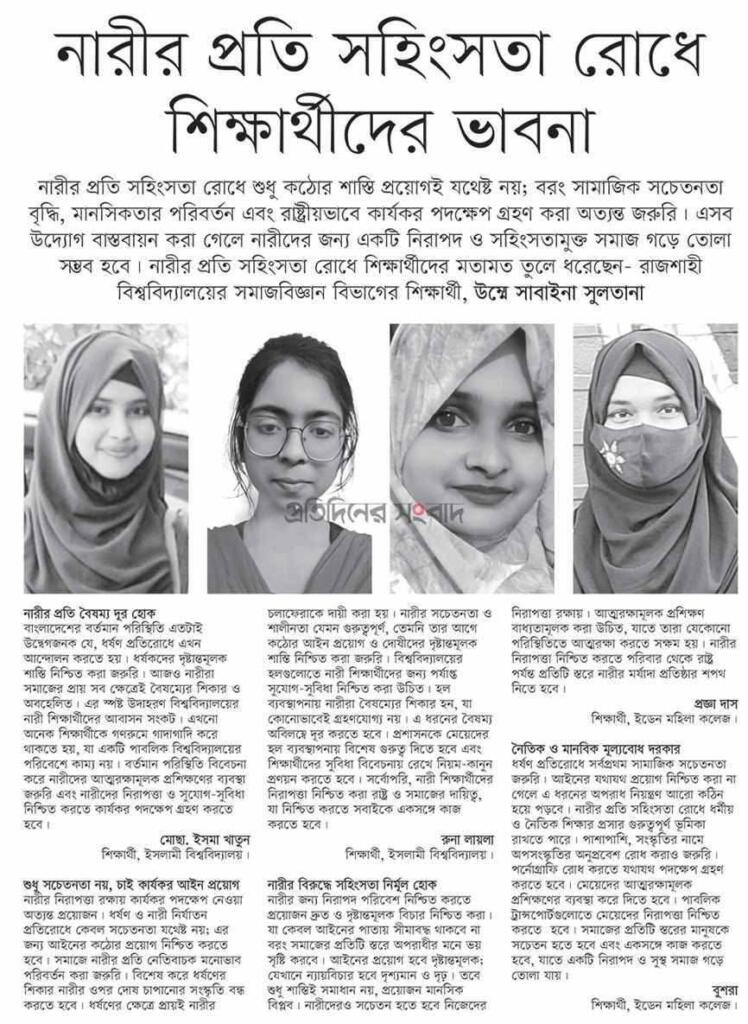 নারীর প্রতি সহিংসতা রোধে
শিক্ষার্থীদের ভাবনা
নারীর প্রতি সহিংসতা রোধে শুধু কঠোর শাস্তি প্রয়োগই যথেষ্ট নয়; বরং সামাজিক সচেতনতা
বৃদ্ধি, মানসিকতার পরিবর্তন এবং রাষ্ট্রীয়ভাবে কার্যকর পদক্ষেপ গ্রহণ করা অত্যন্ত জরুরি। এসব
উদ্যোগ বাস্তবায়ন করা গেলে নারীদের জন্য একটি নিরাপদ ও সহিংসতামুক্ত সমাজ গড়ে তোলা
সম্ভব হবে। নারীর প্রতি সহিংসতা রোধে শিক্ষার্থীদের মতামত তুলে ধরেছেন- রাজশাহী
বিশ্ববিদ্যালয়ের সমাজবিজ্ঞান বিভাগের শিক্ষার্থী, উম্মে সাবাইনা সুলতানা
প্রতিদিনের সংবাদ
নারীর প্রতি বৈষম্য দূর হোক
বাংলাদেশের বর্তমান পরিস্থিতি এতটাই
উদ্বেগজনক যে, ধর্ষণ প্রতিরোধে এখন
আন্দোলন করতে হয়। ধর্ষকদের দৃষ্টান্তমূলক
শাস্তি নিশ্চিত করা জরুরি। আজও নারীরা
সমাজের প্রায় সব ক্ষেত্রেই বৈষম্যের শিকার ও
অবহেলিত। এর স্পষ্ট উদাহরণ বিশ্ববিদ্যালয়ের
নারী শিক্ষার্থীদের আবাসন সংকট। এখনো
অনেক শিক্ষার্থীকে গণরুমে গাদাগাদি করে
থাকতে হয়, যা একটি পাবলিক বিশ্ববিদ্যালয়ের
পরিবেশে কাম্য নয়। বর্তমান পরিস্থিতি বিবেচনা
করে নারীদের আত্মরক্ষামূলক প্রশিক্ষণের ব্যবস্থা
জরুরি এবং নারীদের নিরাপত্তা ও সুযোগ-সুবিধা
নিশ্চিত করতে কার্যকর পদক্ষেপ গ্রহণ করতে
হবে।
মোছা. ইসমা খাতুন
শিক্ষার্থী, ইসলামী বিশ্ববিদ্যালয়।
শুধু সচেতনতা নয়, চাই কার্যকর আইন প্রয়োগ
নারীর নিরাপত্তা রক্ষায় কার্যকর পদক্ষেপ নেওয়া
অত্যন্ত প্রয়োজন। ধর্ষণ ও নারী নির্যাতন
প্রতিরোধে কেবল সচেতনতা যথেষ্ট নয়; এর
জন্য আইনের কঠোর প্রয়োগ নিশ্চিত করতে
হবে। সমাজে নারীর প্রতি নেতিবাচক মনোভাব
পরিবর্তন করা জরুরি। বিশেষ করে ধর্ষণের
শিকার নারীর ওপর দোষ চাপানোর সংস্কৃতি বন্ধ
করতে হবে। ধর্ষণের ক্ষেত্রে প্রায়ই নারীর
চলাফেরাকে দায়ী করা হয়। নারীর সচেতনতা ও
শালীনতা যেমন গুরুত্বপূর্ণ, তেমনি তার আগে
কঠোর আইন প্রয়োগ ও দোষীদের দৃষ্টান্তমূলক
শাস্তি নিশ্চিত করা জরুরি। বিশ্ববিদ্যালয়ের
হলগুলোতে নারী শিক্ষার্থীদের জন্য পর্যাপ্ত
সুযোগ-সুবিধা নিশ্চিত করা উচিত। হল
ব্যবস্থাপনায় নারীরা বৈষম্যের শিকার হন, যা
কোনোভাবেই গ্রহণযোগ্য নয়। এ ধরনের বৈষম্য
অবিলম্বে দূর করতে হবে। প্রশাসনকে মেয়েদের
হল ব্যবস্থাপনায় বিশেষ গুরুত্ব দিতে হবে এবং
শিক্ষার্থীদের সুবিধা বিবেচনায় রেখে নিয়ম-কানুন
প্রণয়ন করতে হবে। সর্বোপরি, নারী শিক্ষার্থীদের
নিরাপত্তা নিশ্চিত করা রাষ্ট্র ও সমাজের দায়িত্ব,
যা নিশ্চিত করতে সবাইকে একসঙ্গে কাজ
করতে হবে।
রুনা লায়লা
শিক্ষার্থী, ইসলামী বিশ্ববিদ্যালয়।
নারীর বিরুদ্ধে সহিংসতা নির্মূল হোক
নারীর জন্য নিরাপদ পরিবেশ নিশ্চিত করতে
প্রয়োজন দ্রুত ও দৃষ্টান্তমূলক বিচার নিশ্চিত করা।
যা কেবল আইনের পাতায় সীমাবদ্ধ থাকবে না
বরং সমাজের প্রতিটি স্তরে অপরাধীর মনে ভয়
সৃষ্টি করবে। আইনের প্রয়োগ হবে দৃষ্টান্তমূলক;
যেখানে ন্যায়বিচার হবে দৃশ্যমান ও দৃঢ়। তবে
শুধু শাস্তিই সমাধান নয়, প্রয়োজন মানসিক
বিপ্লব। নারীদেরও সচেতন হতে হবে নিজেদের
নিরাপত্তা রক্ষায়। আত্মরক্ষামূলক প্রশিক্ষণ
বাধ্যতামূলক করা উচিত, যাতে তারা যেকোনো
পরিস্থিতিতে আত্মরক্ষা করতে সক্ষম হয়। নারীর
নিরাপত্তা নিশ্চিতে পরিবার থেকে রাষ্ট্র
পর্যন্ত প্রতিটি স্তরে নারীর মর্যাদা প্রতিষ্ঠার শপথ
নিতে হবে।
প্রজ্ঞা দাস
শিক্ষার্থী, ইডেন মহিলা কলেজ।
নৈতিক ও মানবিক মূল্যবোধ দরকার
ধর্ষণ প্রতিরোধে সর্বপ্রথম সামাজিক সচেতনতা
জরুরি। আইনের যথাযথ প্রয়োগ নিশ্চিত করা না
গেলে এ ধরনের অপরাধ নিয়ন্ত্রণ আরো কঠিন
হয়ে পড়বে। নারীর প্রতি সহিংসতা রোধে ধর্মীয়
ও নৈতিক শিক্ষার প্রসার গুরুত্বপূর্ণ ভূমিকা
রাখতে পারে। পাশাপাশি, সংস্কৃতির নামে
অপসংস্কৃতির অনুপ্রবেশ রোধ করাও জরুরি।
পর্নোগ্রাফি রোধ করতে যথাযথ পদক্ষেপ গ্রহণ
করতে হবে। মেয়েদের আত্মরক্ষামূলক
প্রশিক্ষণের ব্যবস্থা করে দিতে হবে। পাবলিক
ট্রান্সপোর্টগুলোতে মেয়েদের নিরাপত্তা নিশ্চিত
করতে হবে। সমাজের প্রতিটি স্তরের মানুষকে
সচেতন হতে হবে এবং একসঙ্গে কাজ করতে
হবে, যাতে একটি নিরাপদ ও সুস্থ সমাজ গড়ে
তোলা যায়।
বুশরা
শিক্ষার্থী, ইডেন মহিলা কলেজ।